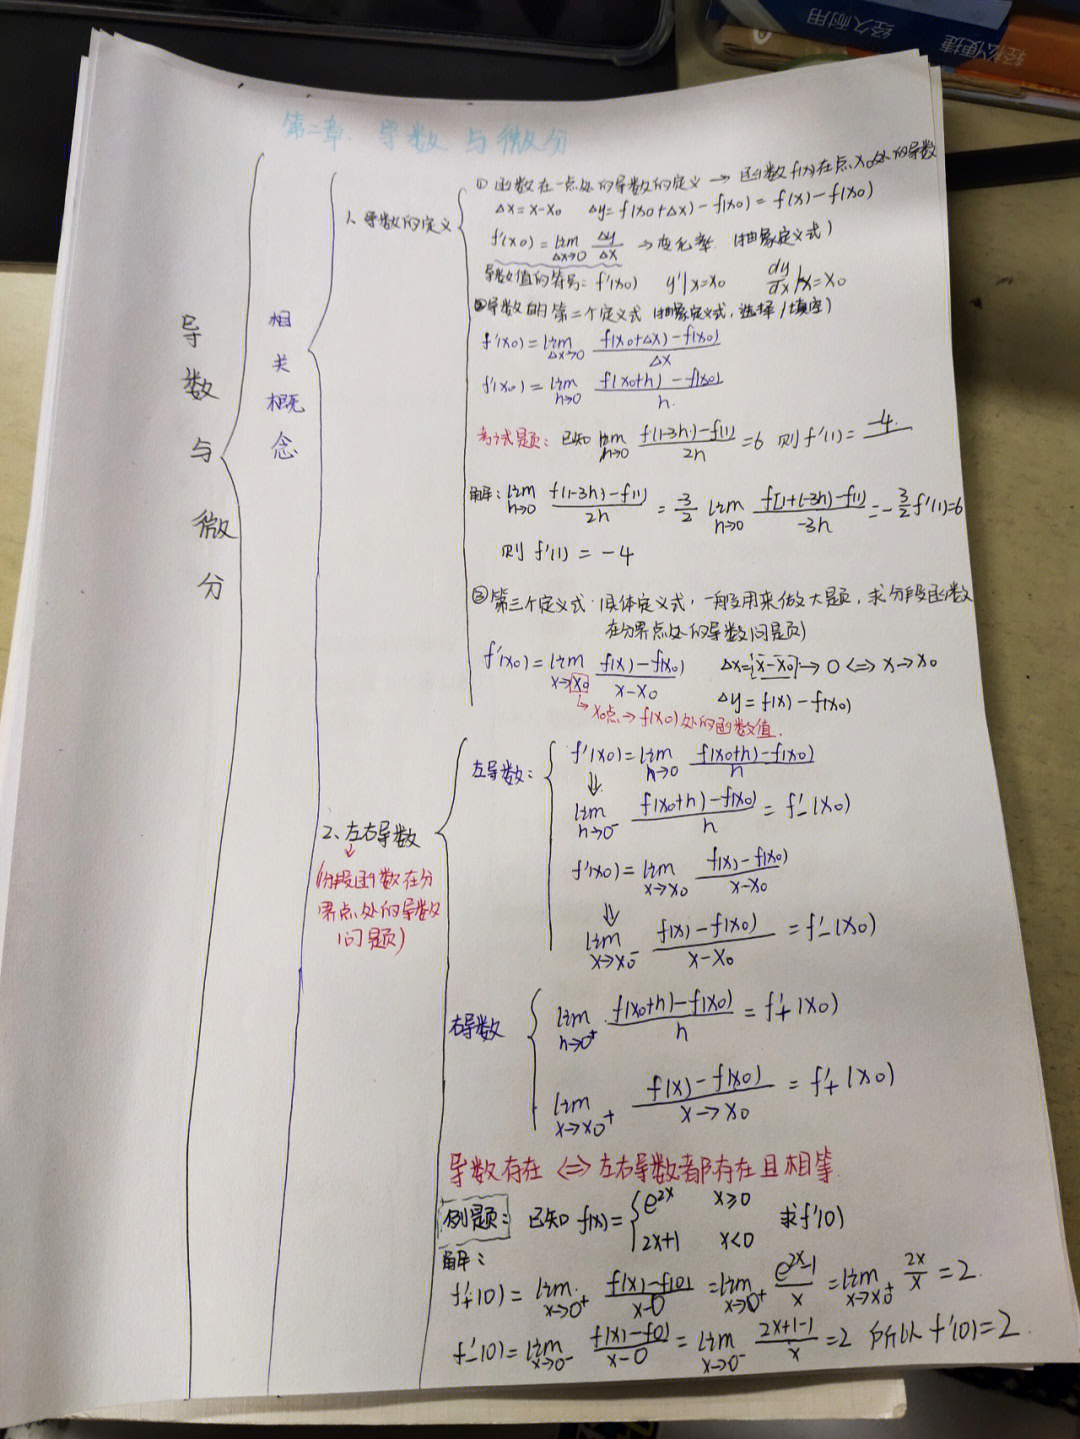 经久耐用
轻松便捷
第二章. 导数与微分
导数与微分
相关概念
1、导数的定义
① 函数在一点处的导数的定义 → 函数f(x)在点x₀处的导数
Δx=x-x₀ Δy=f(x₀+Δx)-f(x₀)=f(x)-f(x₀)
f'(x₀)=lim Δx→0 Δy/Δx → 变化率 (抽象定义式)
导数值的符号: f'(x₀) y'|x=x₀ dy/dx|x=x₀
②导数的第二个定义式 (抽象定义式, 选择/填空)
f'(x₀)=lim Δx→0 f(x₀+Δx)-f(x₀)/Δx
f'(x₀)=lim h→0 f(x₀+h)-f(x₀)/h.
考试题: 已知 lim h→0 f(1-3h)-f(1)/2h=6 则 f'(1)=-4.
解: lim h→0 f(1-3h)-f(1)/2h = -3/2 lim h→0 f[1+(-3h)-f(1)/-3h=-3/2 f'(1)=6
则 f'(1)=-4
③第三个定义式 (具体定义式, 一般用来做大题, 求分段函数
在分界点处的导数问题)
f'(x₀)=lim x→x₀ f(x)-f(x₀)/x-x₀ Δx=x-x₀→0 <=> x→x₀
Δy=f(x)-f(x₀)
↳ x₀点→f(x₀)处的函数值.
2、左右导数
↓
(分段函数在分
界点处的导数
问题)
左导数:
f'(x₀)=lim h→0 f(x₀+h)-f(x₀)/h
⇓
lim h→0⁻ f(x₀+h)-f(x₀)/h=f'₋(x₀)
f'(x₀)=lim x→x₀ f(x)-f(x₀)/x-x₀
⇓
lim x→x₀⁻ f(x)-f(x₀)/x-x₀=f'₋(x₀)
右导数
lim h→0⁺ f(x₀+h)-f(x₀)/h=f'₊(x₀)
lim x→x₀⁺ f(x)-f(x₀)/x→x₀=f'₊(x₀)
导数存在 <=> 左右导数都存在且相等.
例题: 已知 f(x)={e^2x x≥0 求f'(0)
2x+1 x<0
解:
f'₊(0)=lim x→0⁺ f(x)-f(0)/x-0=lim x→0⁺ e^2x-1/x=lim x→x₀⁺ 2x/x=2.
f'₋(0)=lim x→0⁻ f(x)-f(0)/x-0=lim x→0⁻ 2x+1-1/x=2 所以 f'(0)=2